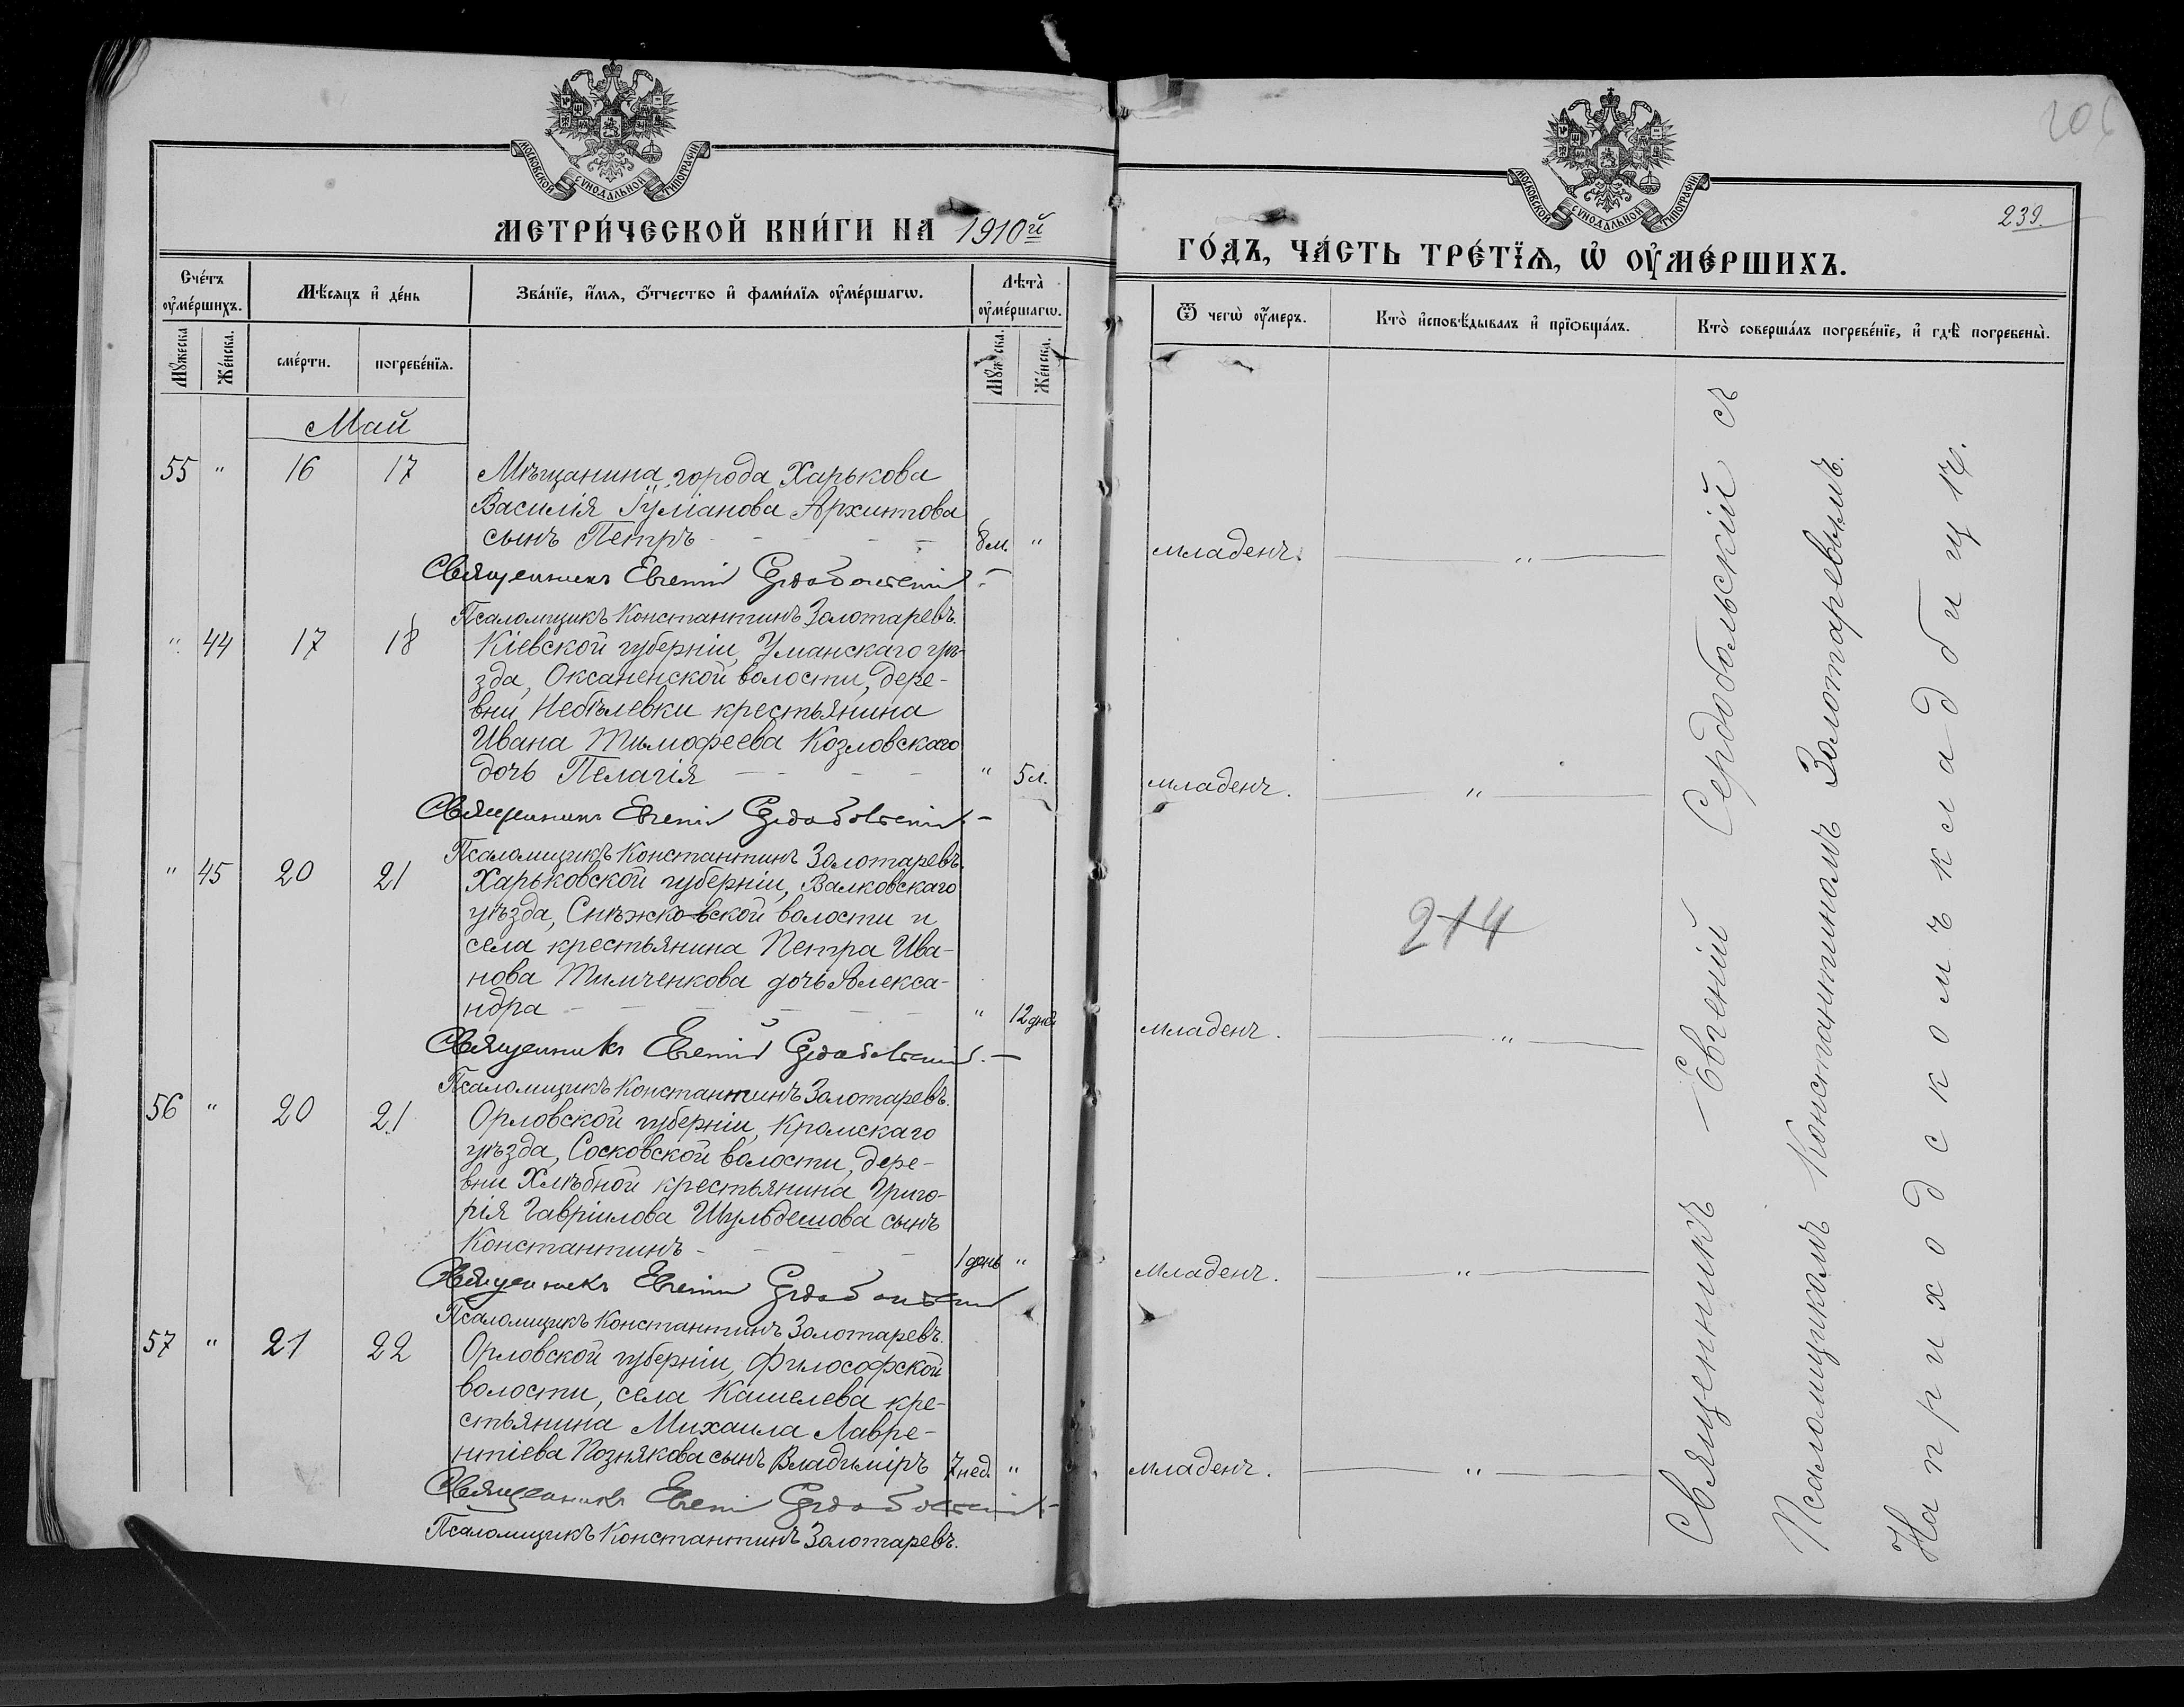 МОСКОВСКОЙ СѴНОДАЛЬНОЙ ТИПОГРАФІИ
МЕТРИ́ЧЕСКОЙ КНИ́ГИ НА 1910й
Сче́тъ ᲂу҆ме́ршихъ.
Мѣ́сяцъ и҆ де́нь
Зва́нїе, и҆́мя, ѻ҆́тчество и҆ фами́лїя ᲂу҆ме́ршагѡ.
Лѣта̀ ᲂу҆ме́ршагѡ.
Мꙋ́жеска
Же́нска.
сме́рти.
погребе́нїя.
Мꙋ́жска.
Же́нска.
Май
55 " 16 17 Мѣщанина города Харькова
Василія Гуліанова Архиптова
сынъ Петръ - - - - 8 м. "
Священникъ Евгеній Сердобольскій
Псаломщикъ Константинъ Золотаревъ.
" 44 17 18 Кіевской губерніи, Уманскаго уѣ-
зда, Оксаненской волости, дере-
вни Небѣлевки крестьянина
Ивана Тимофеева Козловскаго
дочь Пелагія - - - - " 5 л.
Священникъ Евгеній Сердобольскій.
Псаломщикъ Константинъ Золотаревъ.
" 45 20 21 Харьковской губерніи, Валковскаго
уѣзда, Снѣжковской волости и
села крестьянина Петра Ива-
нова Тимченкова дочь Алекса-
ндра - - - - " 12 дней
Священникъ Евгеній Сердобольскій.
Псаломщикъ Константинъ Золотаревъ.
56 " 20 21 Орловской губерніи, Кромскаго
уѣзда, Сосковской волости, дере-
вни Хлѣбной крестьянина Григо-
рія Гавріилова Шульдешова сынъ
Константинъ - - - - 1 день "
Священникъ Евгеній Сердобольскій
Псаломщикъ Константинъ Золотаревъ.
57 " 21 22 Орловской губерніи, Философской
волости, села Кашелева кре-
стьянина Михаила Лавре-
нтіева Познякова сынъ Владиміръ 7 нед. "
Священникъ Евгеній Сердобольскій
Псаломщикъ Константинъ Золотаревъ.
МОСКОВСКОЙ СѴНОДАЛЬНОЙ ТИПОГРАФІИ
239.
ГО́ДЪ, ЧА́СТЬ ТРЕ́ТЇѦ, Ѡ҆ ОУ҆МЕ́РШИХЪ.
Ѿ чегѡ̀ ᲂу҆́меръ.
Кто̀ и҆сповѣ́дывалъ и҆ прїѡбща́лъ.
Кто̀ соверша́лъ погребе́нїе, и҆ гдѣ̀ погребены̀.
младенч. "
младенч. "
214
младенч. "
младенч. "
младенч. "
Священникъ Евгеній Сердобольскій съ
Псаломщикомъ Константиномъ Золотаревымъ.
На приходскомъ кладбищѣ.